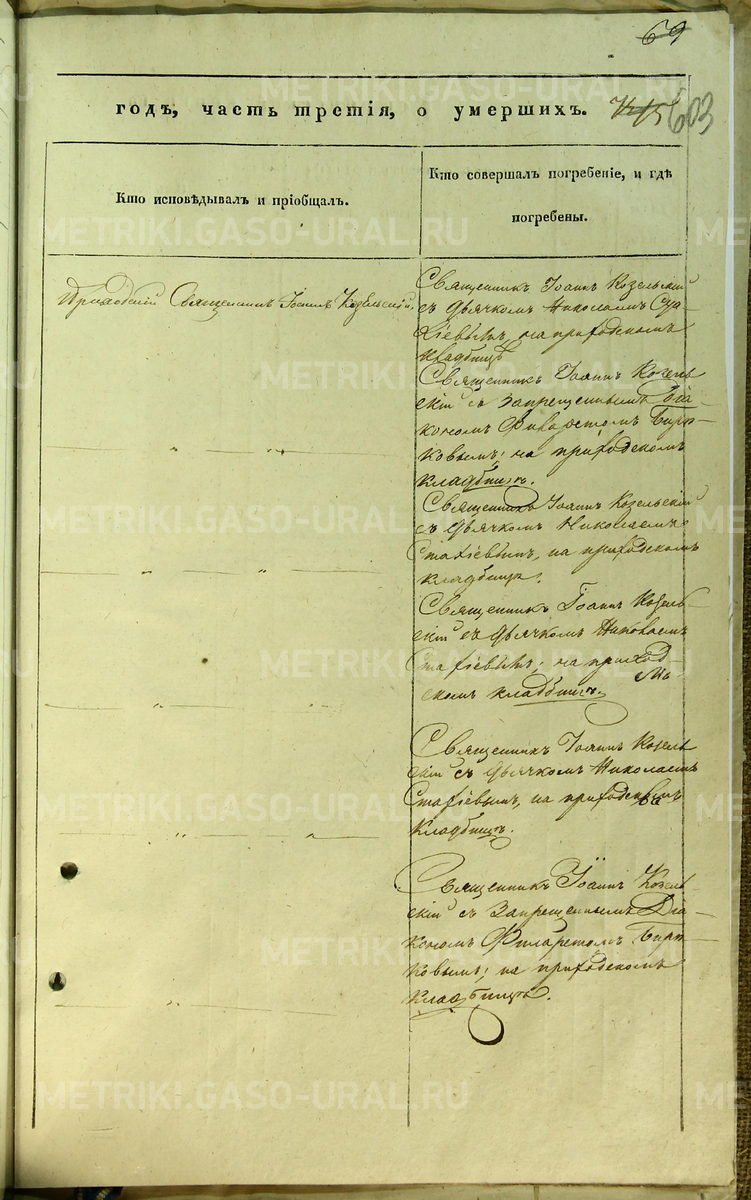 69
годъ, часть третія, о умершихъ.
603
Кто исповѣдывалъ и пріобщалъ.
Кто совершалъ погребеніе, и гдѣ
погребены.
Приходскій Священникъ Іоаннъ Козельскій.
Священникъ Іоаннъ Козельскій
съ дьячкомъ Николаемъ Ста-
хіевымъ, на приходскомъ
кладбищѣ
Священникъ Іоаннъ Козель
скій съ запрещеннымъ Діа-
кономъ Филаретомъ
ковымъ; на приходскомъ
кладбищѣ.
Священникъ Іоаннъ Козельскій
съ дьячкомъ Николаемъ
Стахіевымъ, на приходскомъ
кладбищѣ.
Священникъ Іоаннъ Козель-
скій съ дьячкомъ Николаемъ
Стахіевымъ; на приход-
скомъ кладбищѣ.
Священникъ Іоаннъ Козель
скій съ дьячкомъ Николаемъ
Стахіевымъ, на приходскомъ
кладбищѣ.
Священникъ Іоаннъ Козель-
скій съ Запрещеннымъ Діа-
кономъ Филаретомъ
ковымъ; на приходскомъ
кладбищѣ.
METRIKI.GASO-URAL.RU